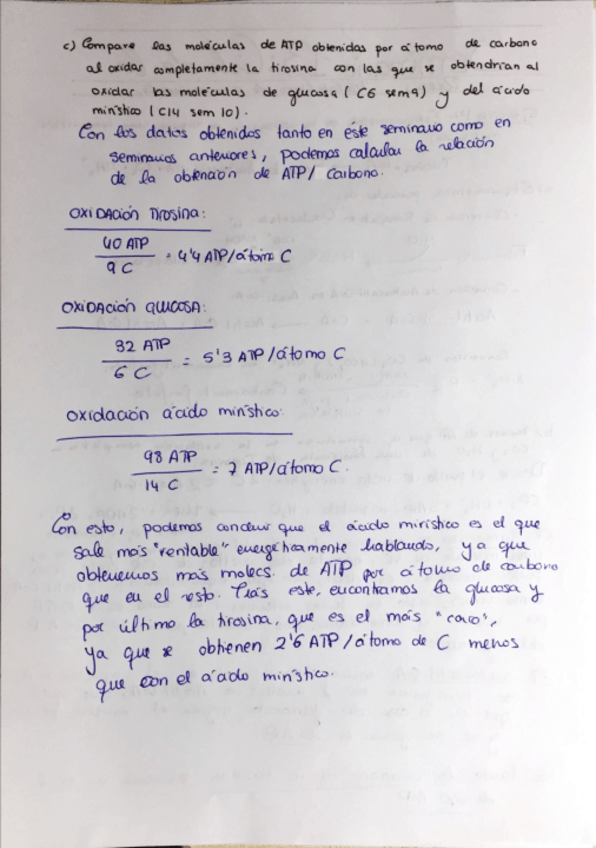 c) Compare las moléculas de ATP obtenidas por átomo de carbono
al oxidar completamente la tirosina con las que se obtendrían al
oxidar las moléculas de glucosa (C6 sem 9) y del ácido
mirístico (C14 sem 10).
Con los datos obtenidos tanto en éste seminario como en
seminarios anteriores, podemos calcular la relación
de la obtención de ATP/ carbono.
OXIDACIÓN TIROSINA:
40 ATP
9 C
= 4'4 ATP/átomo C
OXIDACIÓN GLUCOSA:
32 ATP
6 C
= 5'3 ATP/átomo C
OXIDACIÓN ácido mirístico:
98 ATP
14 C
= 7 ATP/átomo C.
Con esto, podemos concluir que el ácido mirístico es el que
sale más "rentable" energéticamente hablando, ya que
obtenemos más molecs. de ATP por átomo de carbono
que en el resto. Trás este, encontramos la glucosa y
por último la tirosina, que es el más "caro",
ya que se obtienen 2'6 ATP/átomo de C menos
que con el ácido mirístico.